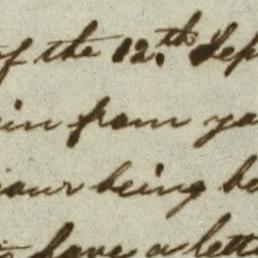 of the 12.th Sep
in from yo
our being be
have a lette